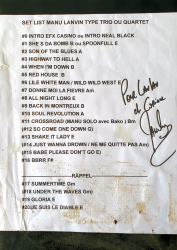 SET LIST MANU LANVIN TYPE TRIO OU QUARTET
#0 INTRO EFX CASINO ou INTRO NEAL BLACK
#1 SHE S DA BOMB B ou SPOONFULL E
#2 SON OF THE BLUES A
#3 HIGHWAY TO HELL A
#4 WHEN I'M DOWN B
#5 RED HOUSE B
#6 LILE WHITE MAN / WILD WILD WEST E
#7 DONNE MOI LA FIEVRE Am
#8 ALL NIGHT LONG E
#9 BACK IN MONTREUX B
#10 SOUL REVOLUTION A
#11 CROSSROAD (MANU SOLO avec Bako ) Bm
(#12 SO COME ONE DOWN G)
#13 SHAKE IT LADY E
(#14 JUST WANNA DROWN / NE ME QUITTE PAS Am)
(#15 BABE PLEASE DON'T GO E)
#16 BBRR F#
RAPPEL
#17 SUMMERTIME Gm
(#18 UNDER THE WAVES Gm)
#19 GLORIA E
#20 JE SUIS LE DIABLE E
Pour